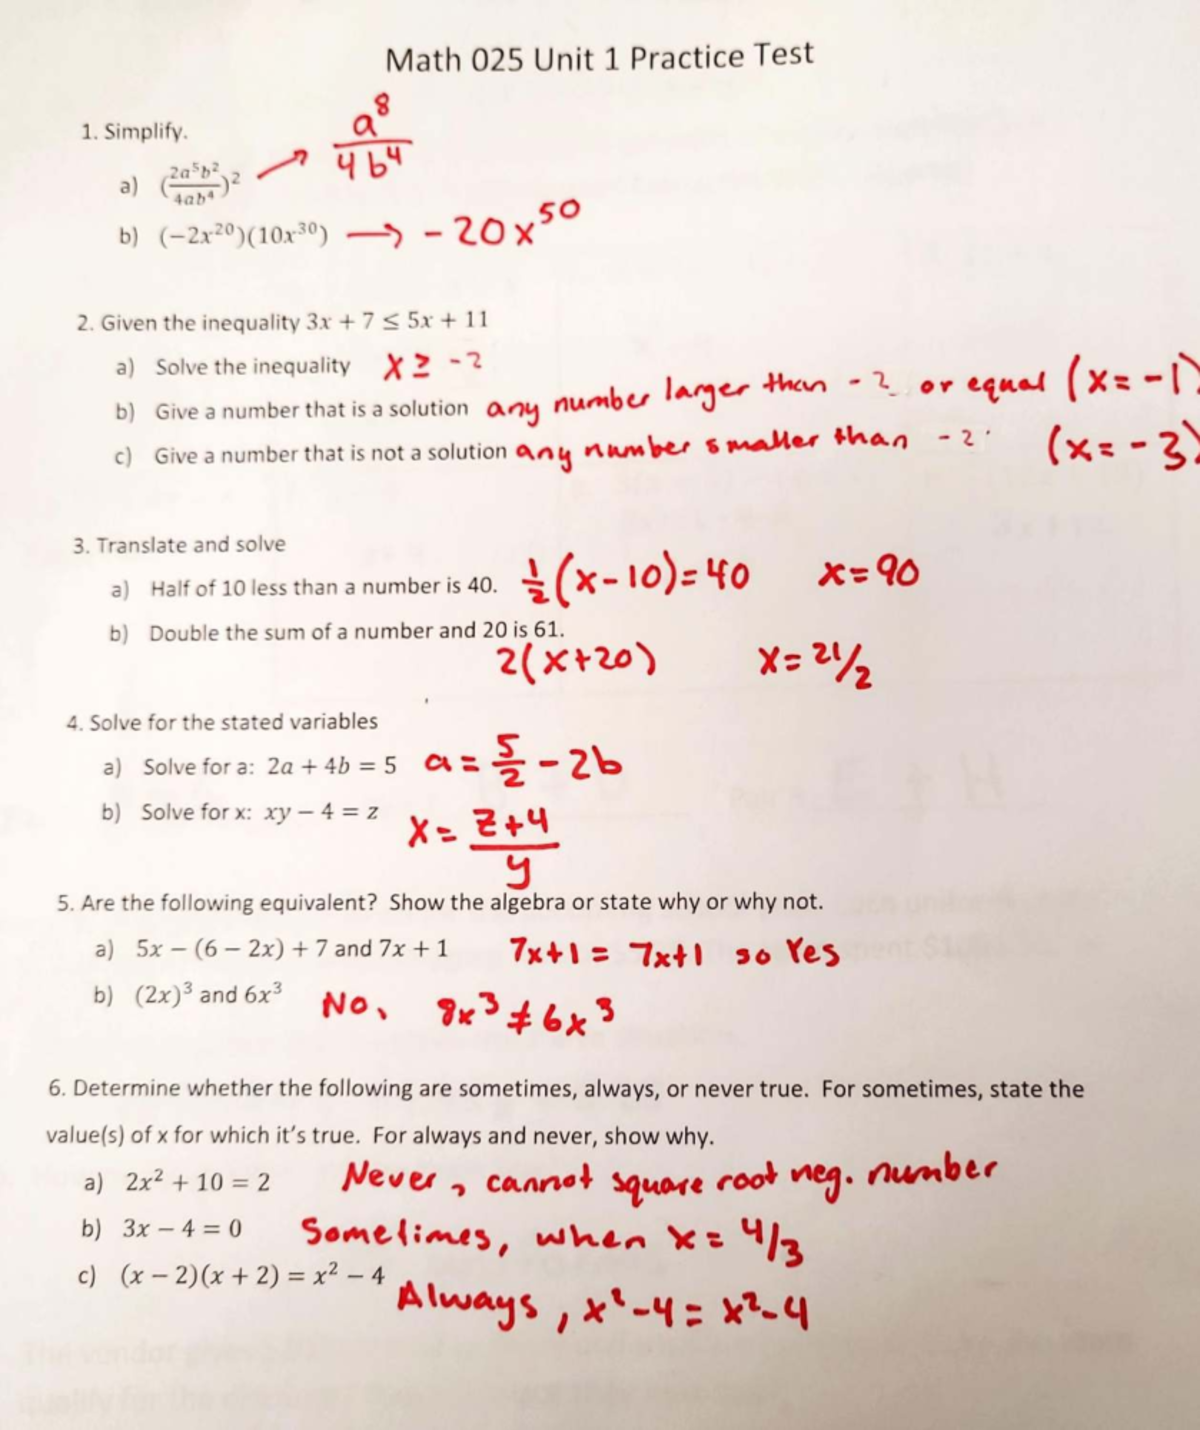 Math 025 Unit 1 Practice Test
1. Simplify.
a) (2a⁵b²/4ab⁴)² → a⁸/4b⁴
b) (−2x²⁰)(10x³⁰) → -20x⁵⁰
2. Given the inequality 3x + 7 ≤ 5x + 11
a) Solve the inequality x ≥ -2
b) Give a number that is a solution any number larger than -2 or equal (x = -1)
c) Give a number that is not a solution any number smaller than -2. (x = -3)
3. Translate and solve
a) Half of 10 less than a number is 40. ½(x-10)=40 x=90
b) Double the sum of a number and 20 is 61.
2(x+20) x= 21/2
4. Solve for the stated variables
a) Solve for a: 2a + 4b = 5 a = 5/2 - 2b
b) Solve for x: xy − 4 = z x = z+4/y
5. Are the following equivalent? Show the algebra or state why or why not.
a) 5x − (6 − 2x) + 7 and 7x + 1 7x+1 = 7x+1 so Yes
b) (2x)³ and 6x³ No, 8x³ ≠ 6x³
6. Determine whether the following are sometimes, always, or never true. For sometimes, state the
value(s) of x for which it's true. For always and never, show why.
a) 2x² + 10 = 2 Never, cannot square root neg. number
b) 3x − 4 = 0 Sometimes, when x = 4/3
c) (x − 2)(x + 2) = x² − 4 Always, x²-4 = x²-4